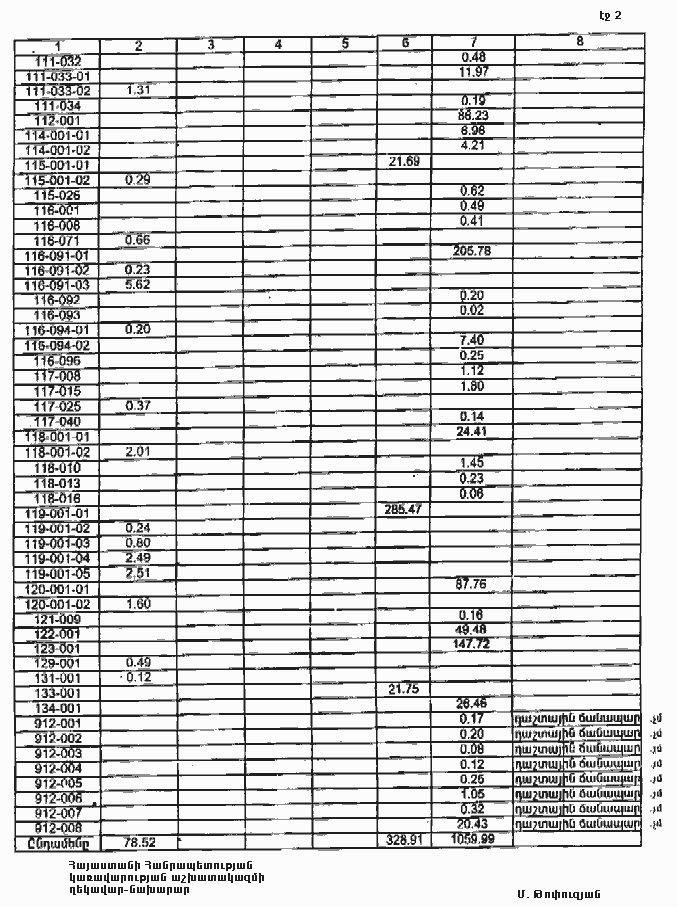 էջ 2
1 2 3 4 5 6 7 8
111-032 0.48
111-033-01 11.97
111-033-02 1.31
111-034 0.19
112-001 86.23
114-001-01 6.96
114-001-02 4.21
115-001-01 21.69
115-001-02 0.29
115-026 0.62
116-001 0.49
116-008 0.41
116-071 0.66
116-091-01 205.78
116-091-02 0.23
116-091-03 5.62
116-092 0.20
116-093 0.02
116-094-01 0.20
116-094-02 7.40
116-096 0.25
117-008 1.12
117-015 1.80
117-025 0.37
117-040 0.14
118-001-01 24.41
118-001-02 2.01
118-010 1.45
118-013 0.23
118-016 0.06
119-001-01 285.47
119-001-02 0.24
119-001-03 0.80
119-001-04 2.49
119-001-05 2.51
120-001-01 87.76
120-001-02 1.60
121-009 0.16
122-001 49.48
123-001 147.72
129-001 0.49
131-001 0.12
133-001 21.75
134-001 26.46
912-001 0.17 դաշտային ճանապար
912-002 0.20 դաշտային ճանապար
912-003 0.08 դաշտային ճանապար
912-004 0.12 դաշտային ճանապար
912-005 0.25 դաշտային ճանապար
912-006 1.05 դաշտային ճանապար
912-007 0.32 դաշտային ճանապար
912-008 20.43 դաշտային ճանապար
Ընդամենը 78.52 328.91 1059.99
Հայաստանի Հանրապետության
կառավարության աշխատակազմի
ղեկավար-նախարար
Մ. Թոփուզյան